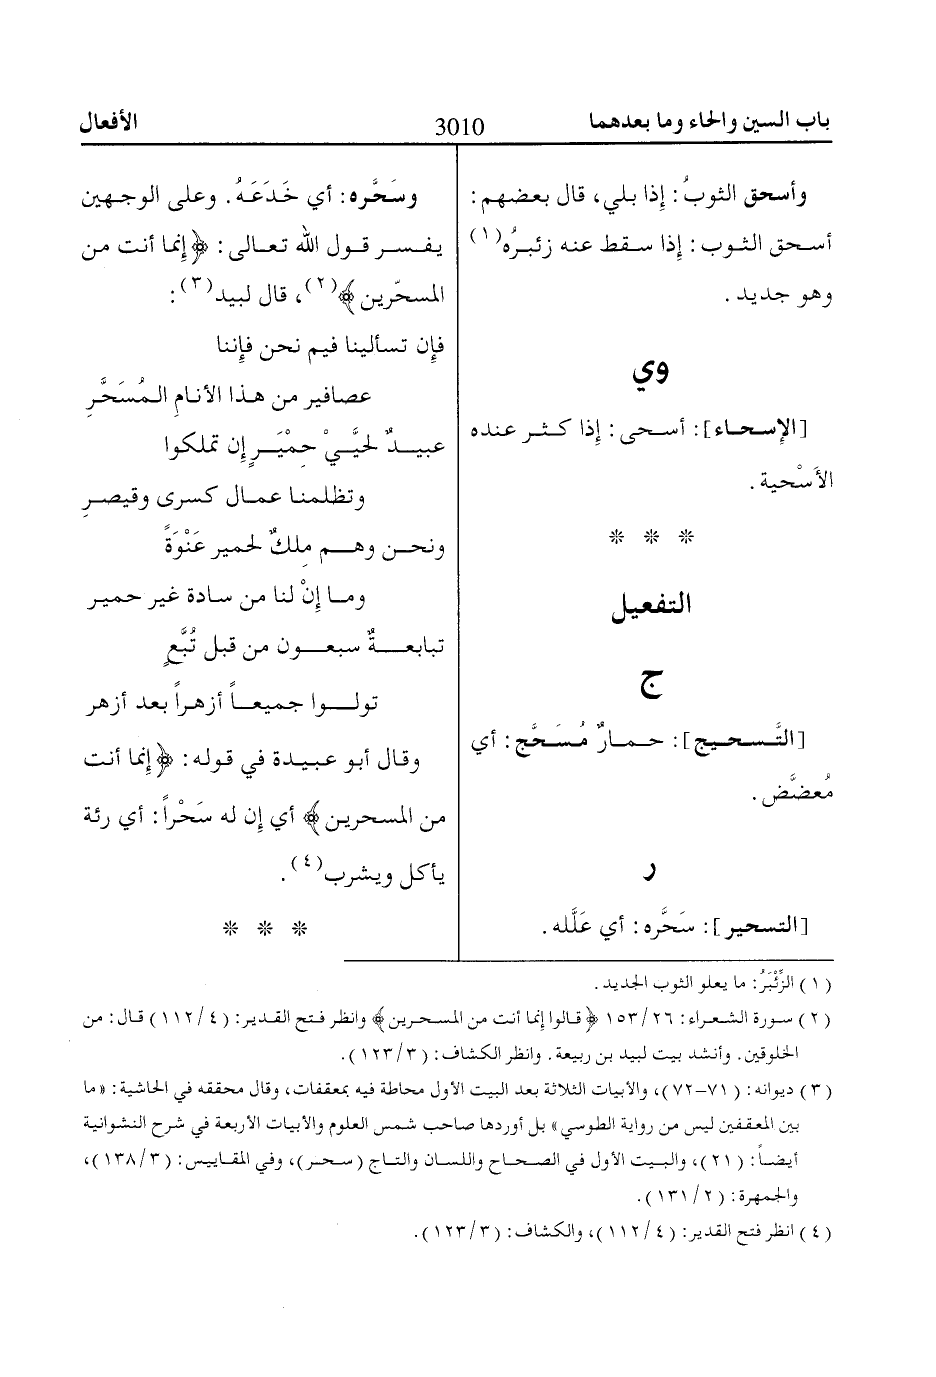 باب السين والحاء وما بعدهما
3010
الأفعال
وأسحق الثوبُ: إذا بلي، قال بعضهم:
أسحق الثوب: إذا سقط عنه زئبرُه(١)
وهو جديد.
وي
[الإسحاء]: أسحى: إذا كثر عنده
الأَسْحية.
* * *
التفعيل
ج
[التَّسحيج]: حمارٌ مُسَحَّج: أي
مُعضَّض.
ر
[التسحير]: سَحَّره: أي علَّله.
وسَحَّره: أي خَدَعَهُ. وعلى الوجهين
يفسر قول الله تعالى: ﴿إنما أنت من
المسحّرين﴾(٢)، قال لبيد(٣):
فإن تسألينا فيم نحن فإننا
عصافير من هذا الأنامِ المُسَحَّرِ
عبيدٌ لحيَّيْ حِمْيَرٍ إن تملكوا
وتظلمنا عمال كسرى وقيصرِ
ونحن وهم مِلكٌ لحمير عَنْوَةً
وما إنْ لنا من سادة غير حمير
تبابعةٌ سبعون من قبل تُبَّعٍ
تولوا جميعاً أزهراً بعد أزهر
وقال أبو عبيدة في قوله: ﴿إنما أنت
من المسحرين﴾ أي إن له سَحْراً: أي رئة
يأكل ويشرب(٤).
* * *
(١) الزِّئْبَرُ: ما يعلو الثوب الجديد.
(٢) سورة الشعراء: ١٥٣/٢٦ ﴿قالوا إنما أنت من المسحرين﴾ وانظر فتح القدير: (١١٢/٤) قال: من
الخلوقين. وأنشد بيت لبيد بن ربيعة. وانظر الكشاف: (١٢٣/٣).
(٣) ديوانه: (٧١-٧٢)، والأبيات الثلاثة بعد البيت الأول محاطة فيه بمعقفات، وقال محققه في الحاشية: «ما
بين المعقفين ليس من رواية الطوسي» بل أوردها صاحب شمس العلوم والأبيات الأربعة في شرح النشوانية
أيضاً: (٢١)، والبيت الأول في الصحاح واللسان والتاج (سحر)، وفي المقاييس: (١٣٨/٣)،
والجمهرة: (١٣١/٢).
(٤) انظر فتح القدير: (١١٢/٤)، والكشاف: (١٢٣/٣).